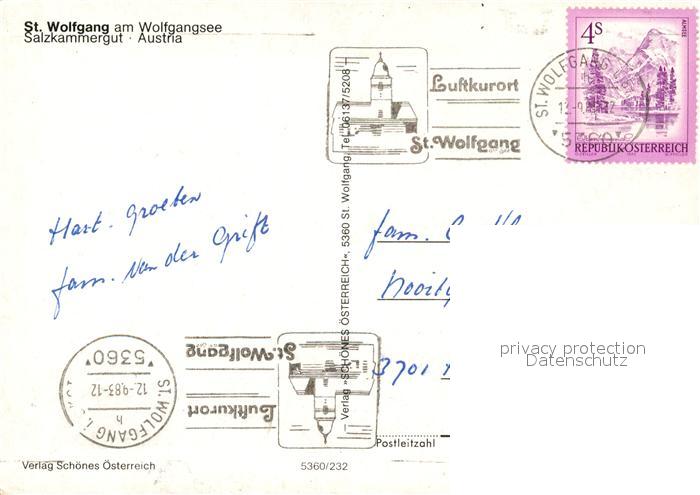 St. Wolfgang am Wolfgangsee
Salzkammergut · Austria
Luftkurort
St. Wolfgang
ST. WOLFGANG
5360
4S
ALMSEE
REPUBLIK ÖSTERREICH
Hart. Groeten
fam. van der Grift
fam.
3701
privacy protection
Datenschutz
Postleitzahl
Verlag »SCHÖNES ÖSTERREICH«, 5360 St. Wolfgang, Tel. 06137/5208
St. Wolfgang
Luftkurort
5360
12.-9.83-12
h
ST. WOLFGANG i.
Verlag Schönes Österreich
5360/232